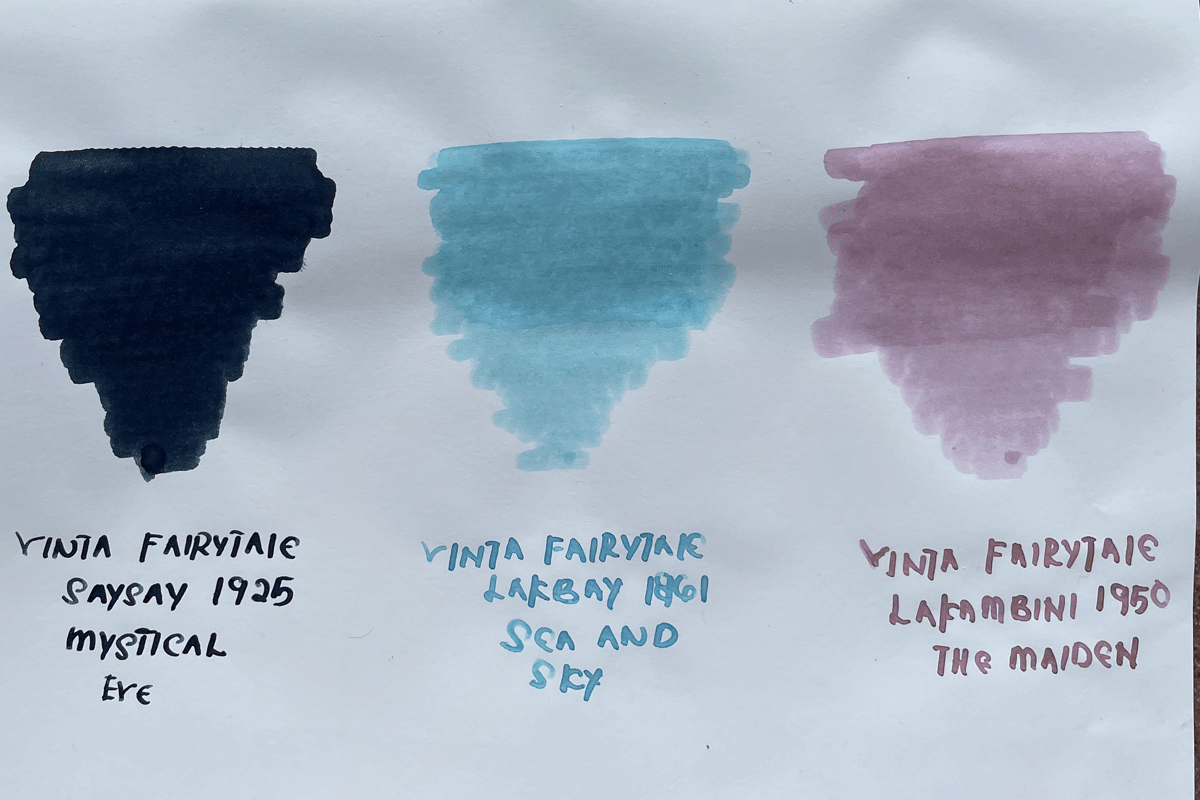 VINTA FAIRYTALE
SAYSAY 1925
MYSTICAL
EVE
VINTA FAIRYTALE
LAKBAY 1861
SEA AND
SKY
VINTA FAIRYTALE
LAKAMBINI 1950
THE MAIDEN